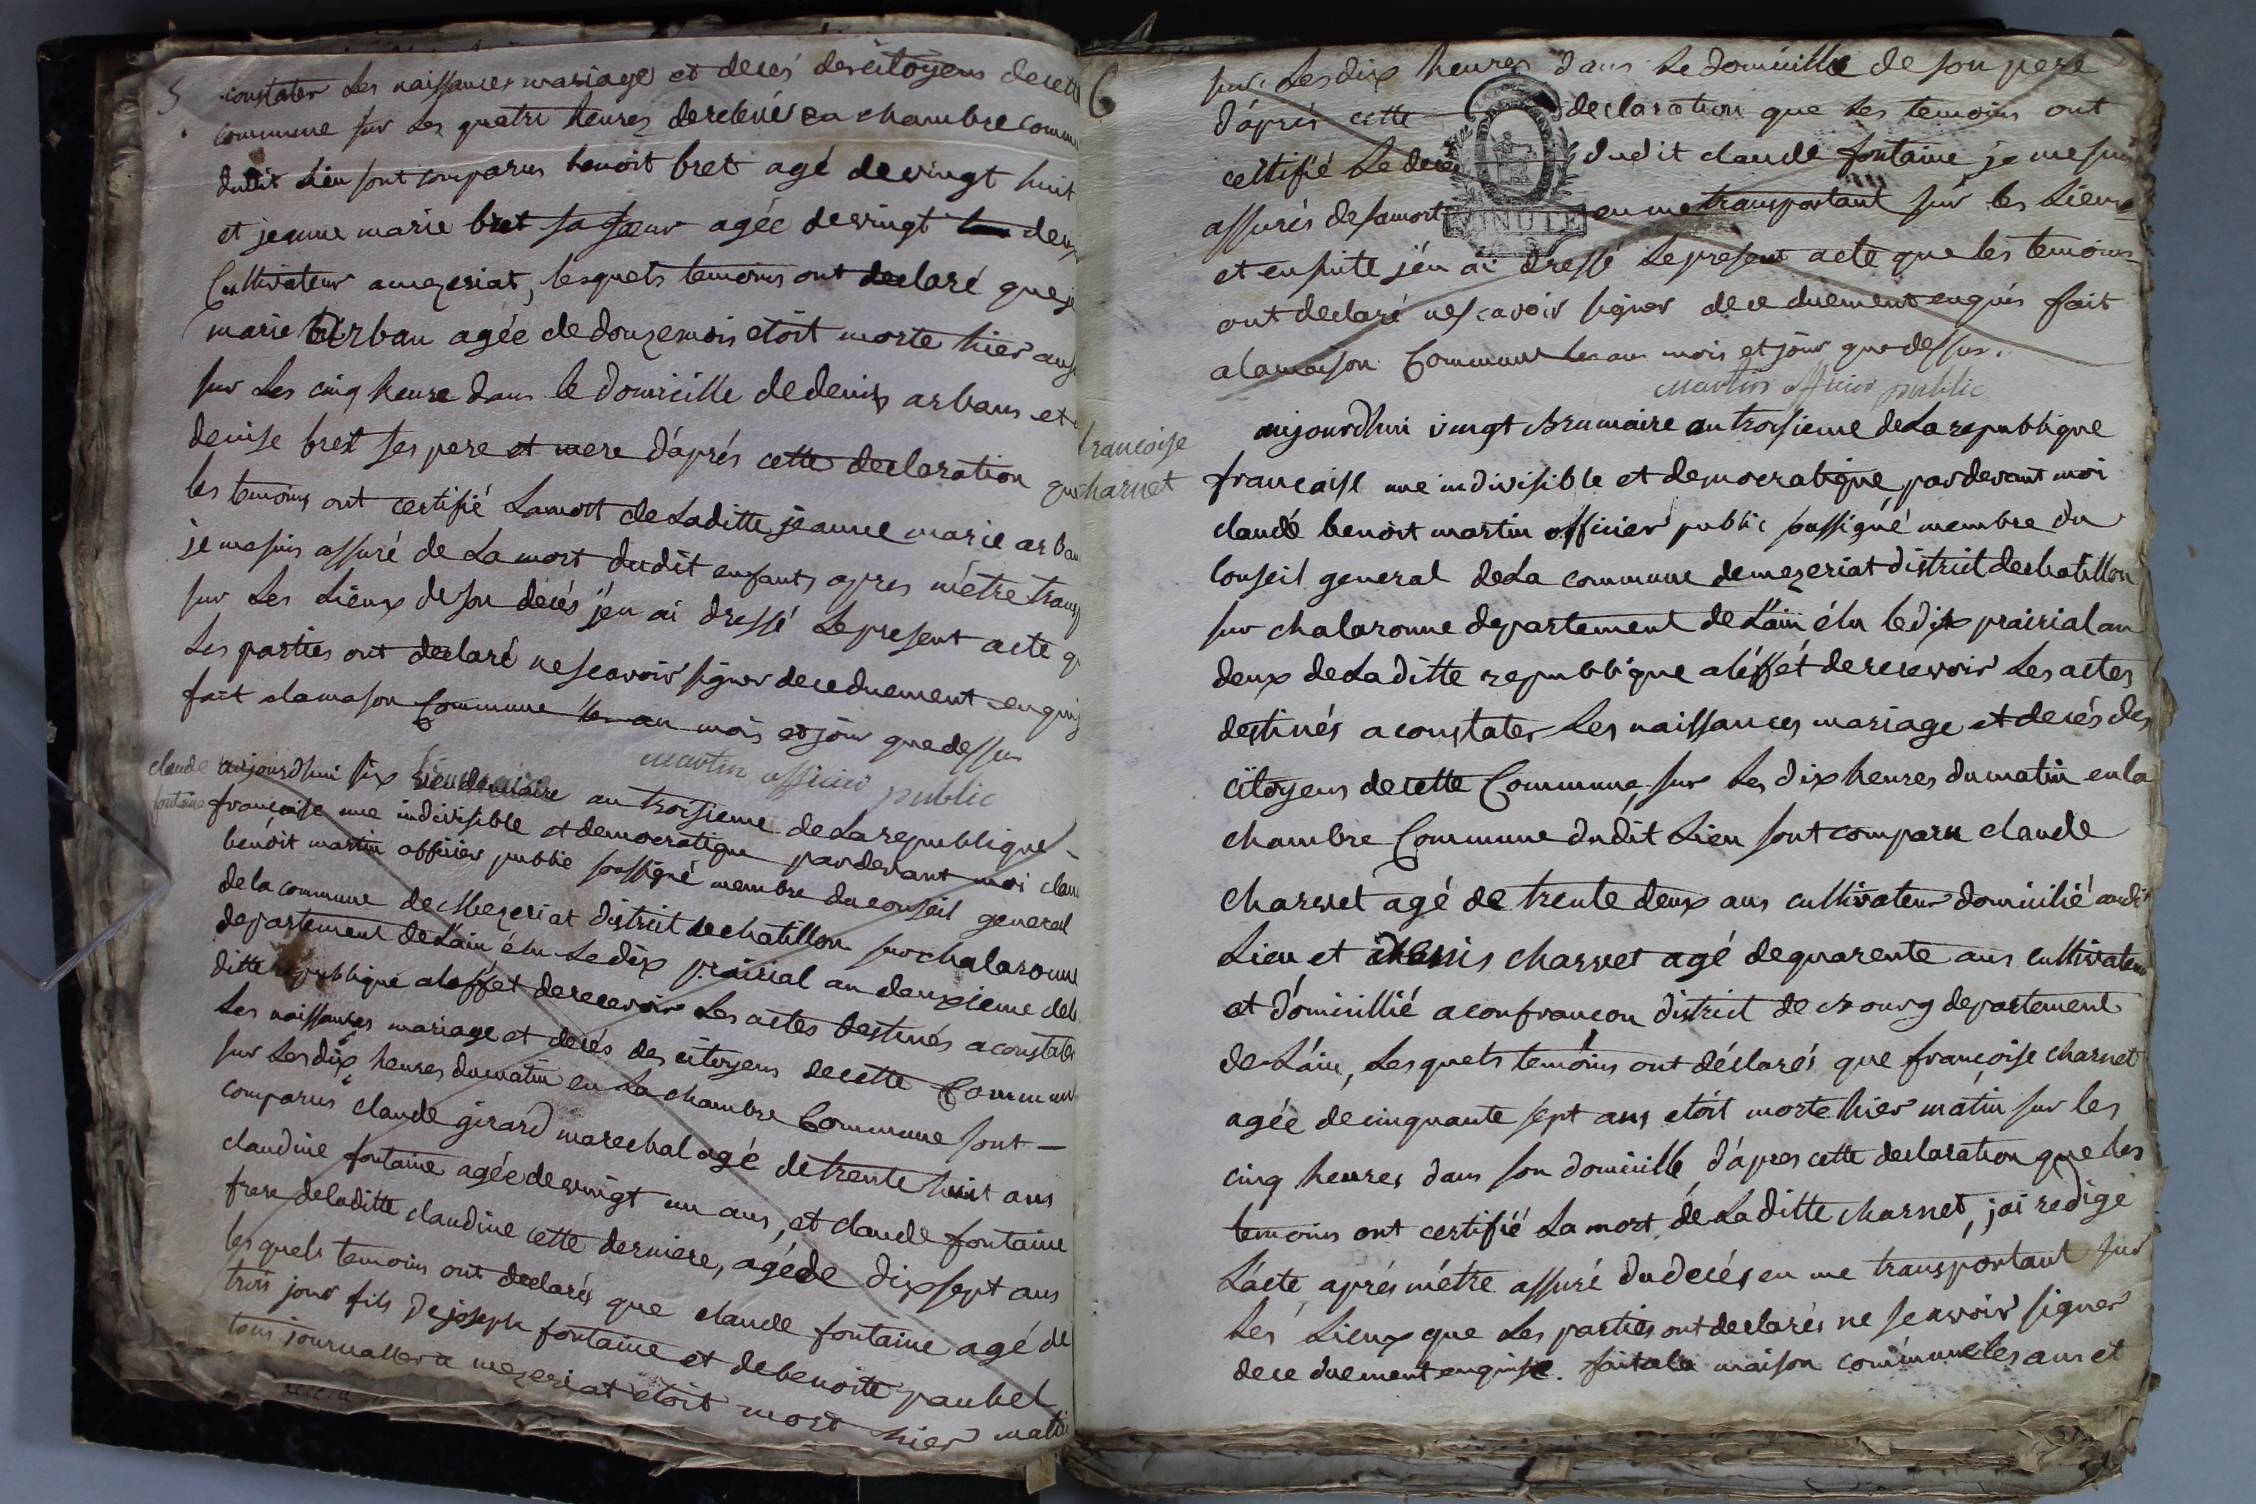 5
constater les naissances mariage et decés des citoyens de cett
commune sur les quatre heures de relevée en chambre comm
dudit lieu sont comparus benoit bret agé de vingt huit
et jeanne marie bret sa sœur agée de vingt deux
Cultivateur a mezeriat, lesquels temoins ont declaré que je
marie arban agée de douze mois etoit morte hier au so
sur les cinq heure dans le domicille de denis arban et
denise bret ses pere et mere d'aprés cette declaration que
les temoins ont certifié la mort de laditte jeanne marie arban
je me suis assuré de la mort dudit enfant, apres m'etre trans
sur les lieux de son decés j'en ai dressé le present acte q
les parties ont declaré ne scavoir signer de ce duement enquis
fait a la maison Commune les an mois et jour que dessus
martin officier public
claude
fontaine
aujourd'hui six an troisieme de la republique
française une indivisible et democratique pardevant moi clau
benoit martin officier public soussigné membre du conseil general
de la commune de Mezeriat district de chatillon sur chalaronne
departement de l'ain, élu le dix prairial an deuxieme de la
ditte republique a l'effet de recevoir les actes destinés a constater
les naissances mariage et decés des citoyens de cette Commune
sur les dix heures du matin en la chambre Commune sont
comparus claude girard marechal agé de trente huit ans
claudine fontaine agée de vingt un ans, et claude fontaine
frere de laditte claudine cette derniere, agé de dix sept ans
lesquels temoins ont declarés que claude fontaine agé de
trois jour fils de joseph fontaine et de benoite paubel
tous journallier a mezeriat etoit mort hier matin
6
sur les dix heures dans le domicille de son pere
d'aprés cette declaration que les temoins ont
certifié le decés dudit claude fontaine, je me suis
assurés de sa mort en me transportant sur les lieux
MINUTE
et ensuite j'en ai dressé le present acte que les temoins
ont declaré ne scavoir signer de ce duement enquis fait
a la maison Commune les an mois et jour que dessus.
martin officier public
francoise
charnet
aujourd'hui vingt brumaire an troisieme de la republique
francaise une indivisible et democratique, pardevant moi
claude benoit martin officier public soussigné membre du
Conseil general de la commune de mezeriat district de chatillon
sur chalaronne departement de l'ain, élu le dix prairial an
deux de laditte republique a l'éffét de recevoir les actes
destinés a constater les naissances mariage et decés des
citoyens de cette Commune, sur les dix heures du matin en la
chambre Commune dudit lieu sont comparu claude
charnet agé de trente deux ans cultivateur domicilié audit
lieu et denis charnet agé de quarente ans cultivateur
et domicillié a confrançon district de bourg departement
de l'ain, lesquels temoins ont déclarés que françoise charnet
agée de cinquante sept ans etoit morte hier matin sur les
cinq heures dans son domicille, d'apres cette declaration que les
temoins ont certifié la mort de laditte charnet, j'ai redigé
l'acte, aprés m'étre assuré du decés en me transportant sur
les lieux que les parties ont declarés ne scavoir signer
de ce duement enquise. fait a la maison commune les an et